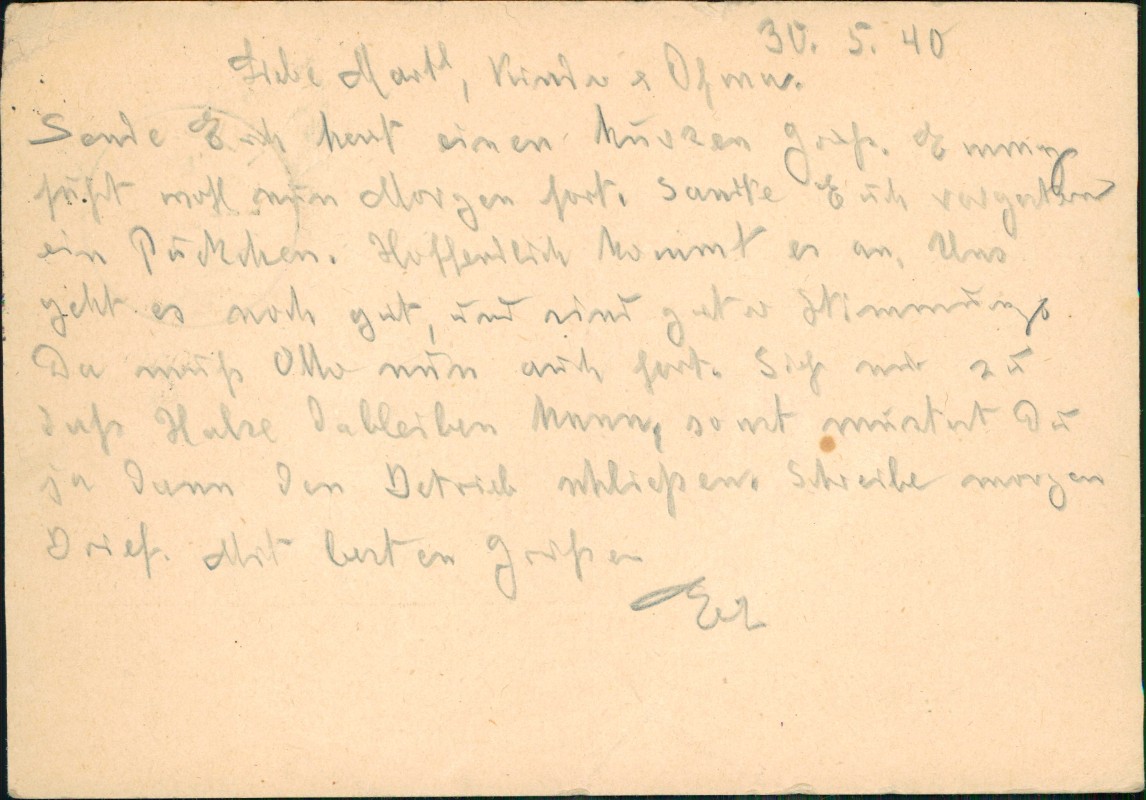 30. 5. 40
Liebe Martl, Kinder & Ohma.
Sende Euch heut einen kurzen Gruß. Emmy
fährt wohl nun Morgen fort. Sandte Euch vorgestern
ein Päckchen. Hoffendlich kommt es an. Uns
geht es noch gut, und sind guter Stimmung.
Da muß Otto nun auch fort. Sieh nur zu
daß dableiben kann, sonst müstest Du
ja dann den Betrieb schließen. Schreibe morgen
Brief. Mit besten Grüßen